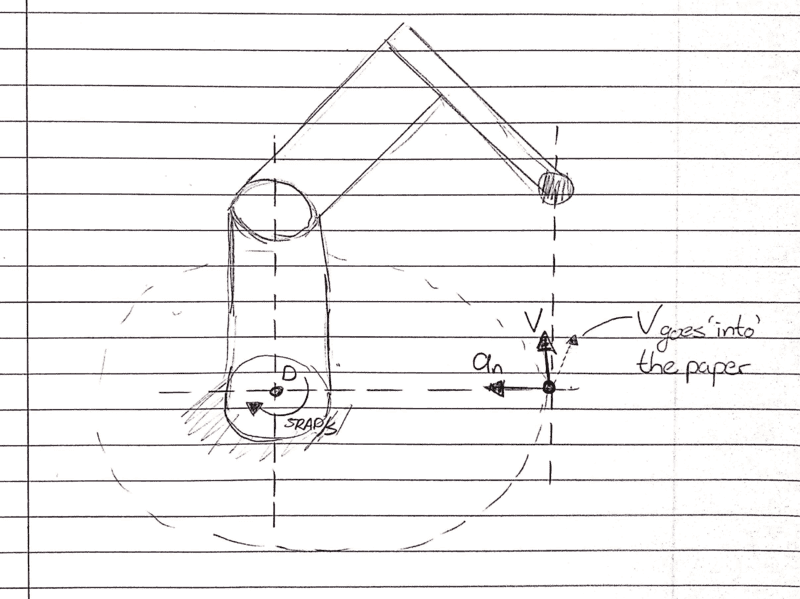 V
V goes 'into'
the paper
an
D
5RAD/S